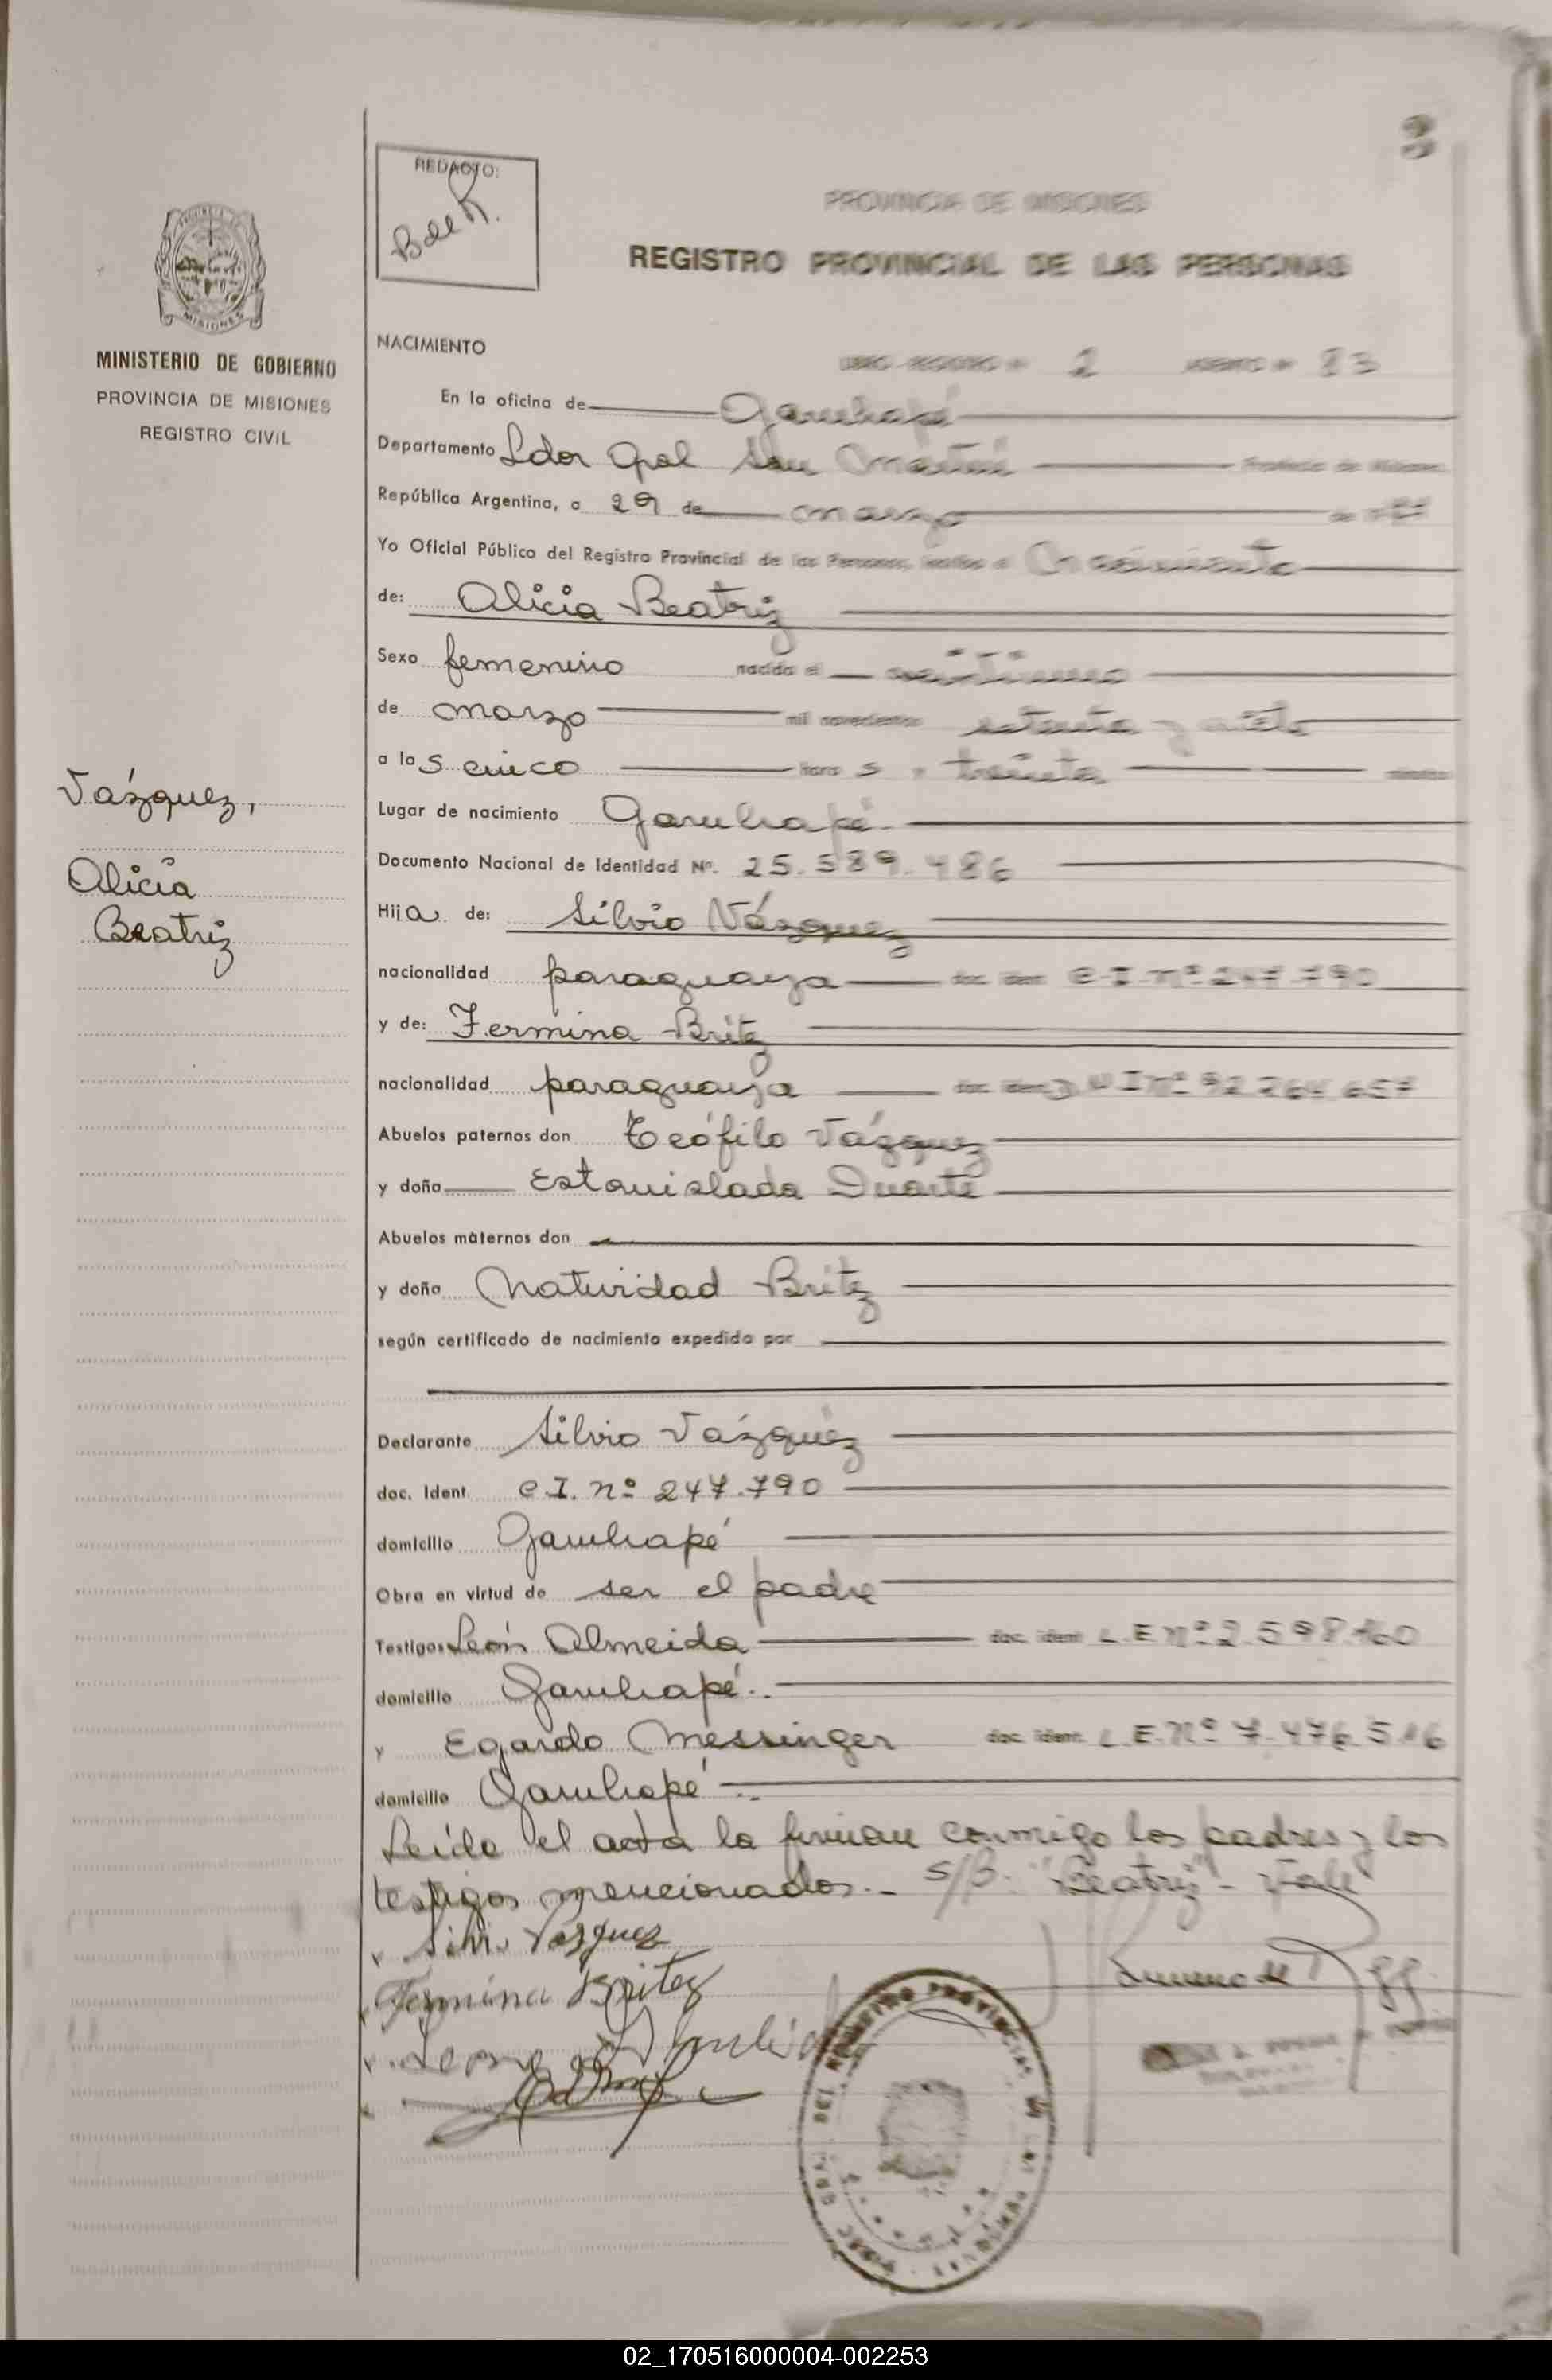 3
REDACTO:
B de R.
PROVINCIA DE MISIONES
REGISTRO PROVINCIAL DE LAS PERSONAS
MISIONES
MINISTERIO DE GOBIERNO
PROVINCIA DE MISIONES
REGISTRO CIVIL
NACIMIENTO
LIBRO-REGISTRO Nº 2 ASIENTO Nº 83
En la oficina de Garuhapé
Departamento Ldor Gral San Martín Provincia de Misiones
República Argentina, a 29 de marzo de 1977
Yo Oficial Público del Registro Provincial de las Personas, inscribo el Nacimiento
de: Alicia Beatriz
Sexo femenino nacida el veintiuno
de marzo mil novecientos setenta y siete
a las cinco horas, treinta minutos
Lugar de nacimiento Garuhapé.
Documento Nacional de Identidad Nº. 25.589.486
Hija de: Silvio Vázquez
nacionalidad paraguaya doc. ident. C.I. nº 247.790
y de: Fermina Britez
nacionalidad paraguaya doc. ident. D N I nº 92 264 657
Abuelos paternos don Teófilo Vázquez
y doña Estanislada Duarte
Abuelos maternos don
y doña Natividad Britez
según certificado de nacimiento expedido por
Declarante Silvio Vázquez
doc. Ident. C.I. nº 247.790
domicilio Garuhapé
Obra en virtud de ser el padre
Testigos León Almeida doc. ident. L.E nº 2.598.160
domicilio Garuhapé..
y Egardo Messinger doc. ident. L.E. Nº 7.476.516
domicilio Garuhapé..
Leída el acta la firman conmigo los padres y los
testigos mencionados.- S/B: "Beatriz" - Vale
Vázquez,
Alicia
Beatriz
Silvio Vasquez
Fermina Britez
02_170516000004-002253